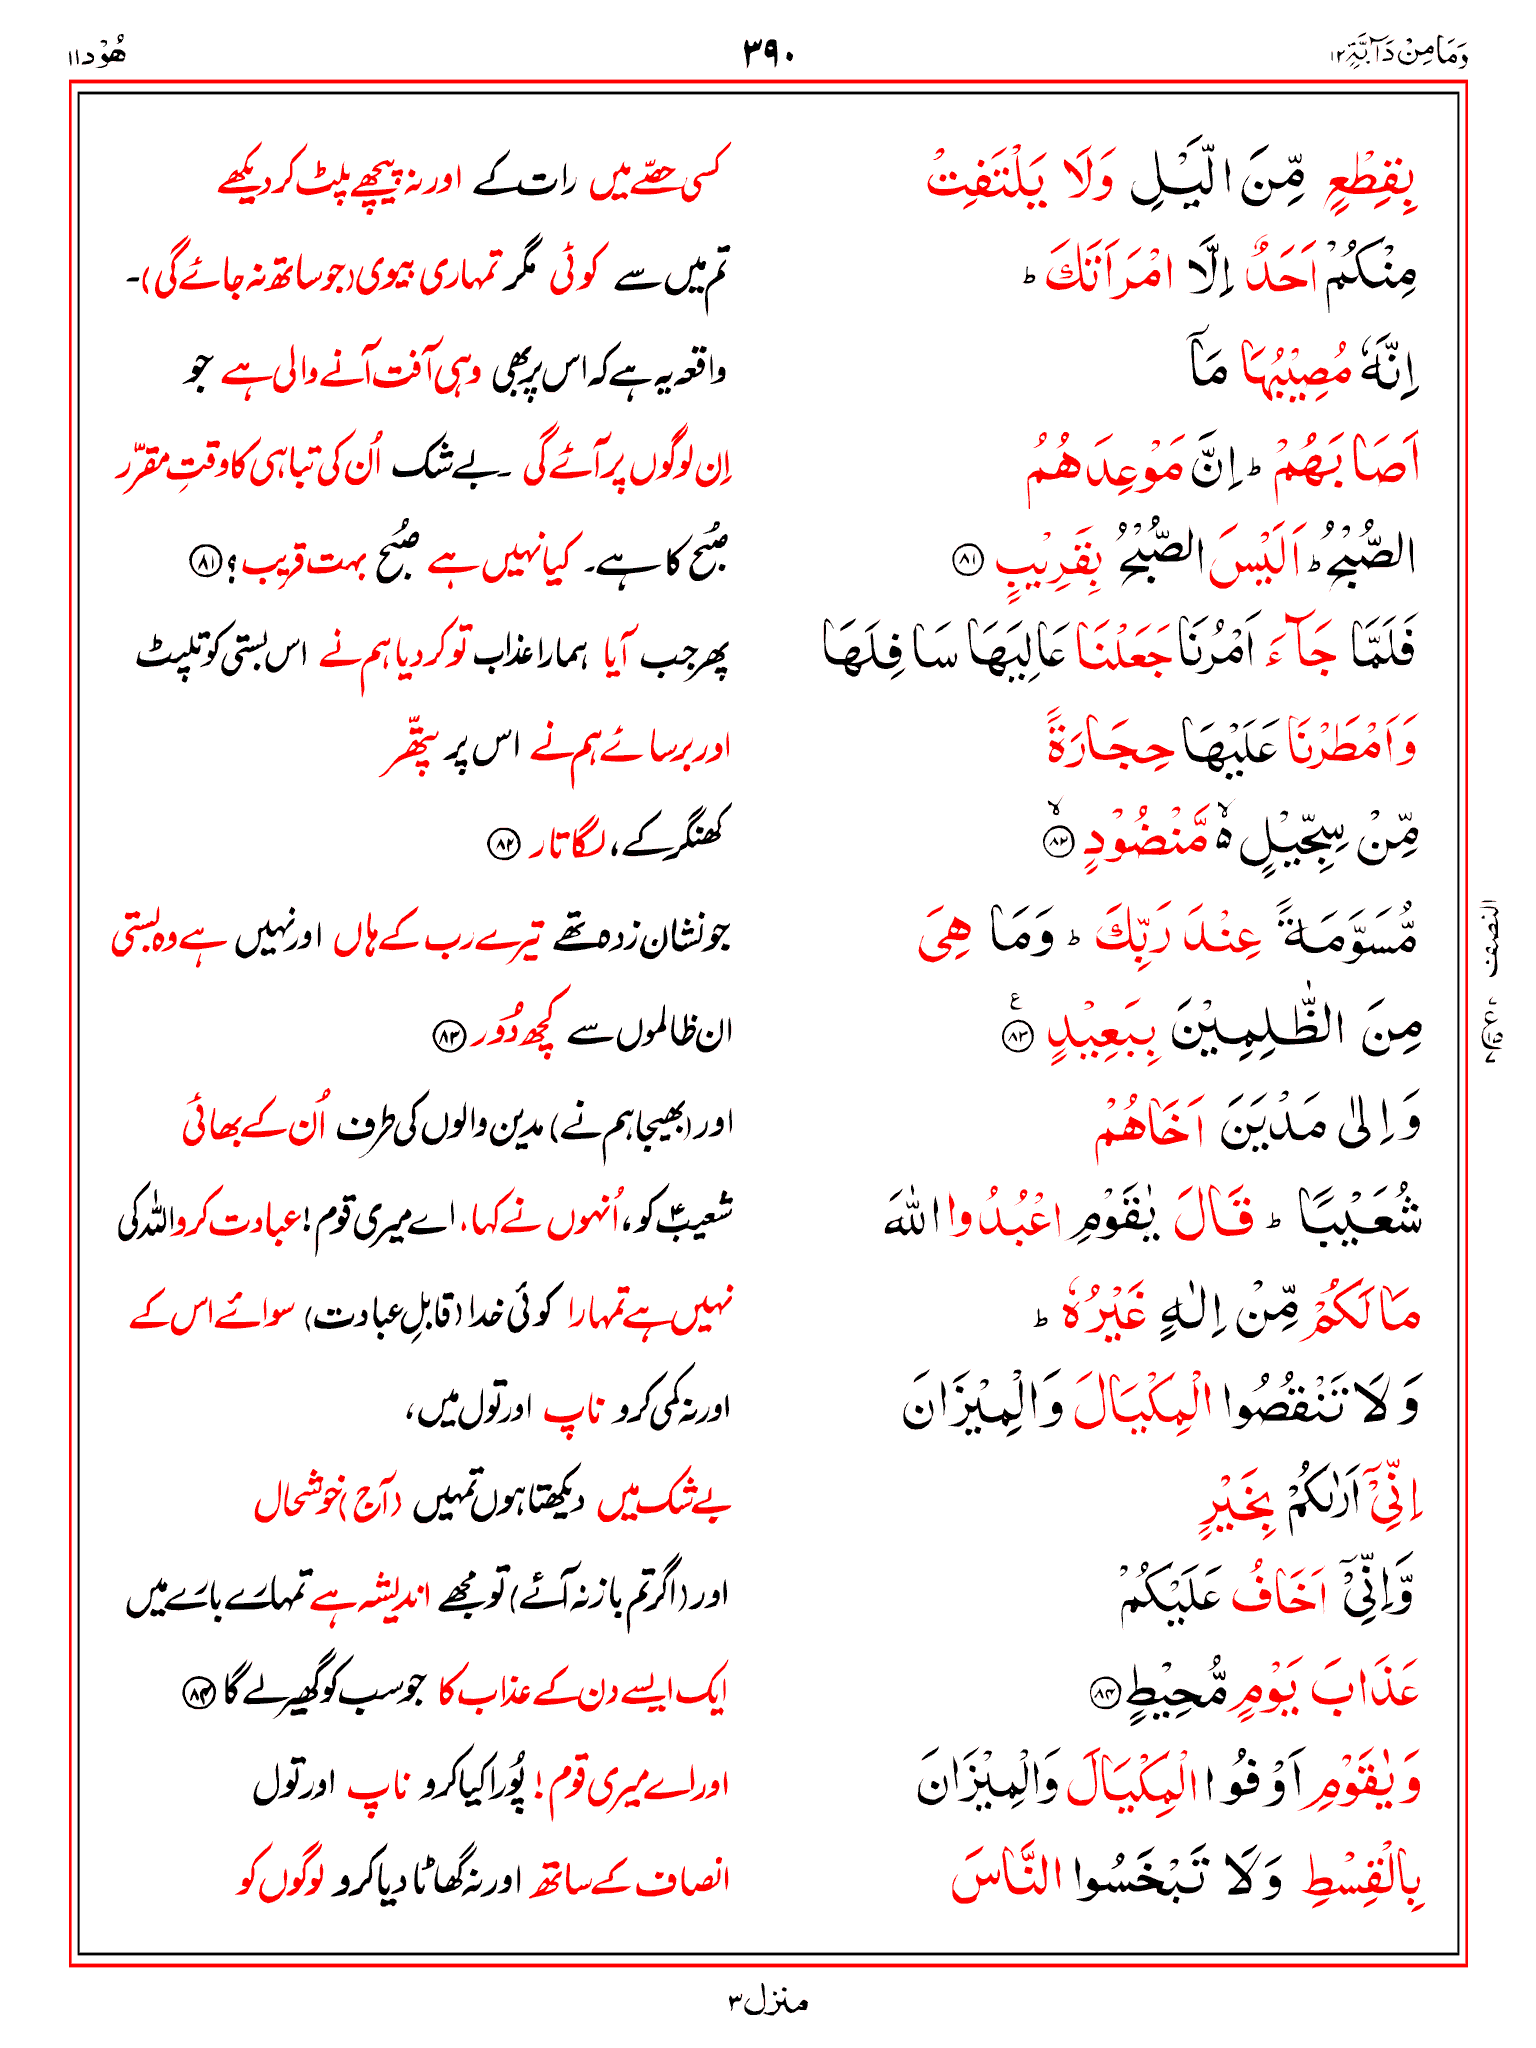 وَمَا مِنْ دَآبَّةٍ ١٢ ٣٩٠ هُوْد ١١
بِقِطْعٍ مِّنَ الَّيْلِ وَلَا يَلْتَفِتْ کسی حصّے میں رات کے اور نہ پیچھے پلٹ کر دیکھے
مِنْكُمْ اَحَدٌ اِلَّا امْرَاَتَكَ ؕ تم میں سے کوئی مگر تمہاری بیوی (جو ساتھ نہ جائے گی)۔
اِنَّهٗ مُصِيْبُهَا مَاۤ واقعہ یہ ہے کہ اس پر بھی وہی آفت آنے والی ہے جو
اَصَابَهُمْ ؕ اِنَّ مَوْعِدَهُمُ اِن لوگوں پر آئے گی ۔ بے شک اُن کی تباہی کا وقتِ مقرّر
الصُّبْحُ ؕ اَلَيْسَ الصُّبْحُ بِقَرِيْبٍ ٨١ صُبح کا ہے۔ کیا نہیں ہے صُبح بہت قریب؟ ٨١
فَلَمَّا جَآءَ اَمْرُنَا جَعَلْنَا عَالِيَهَا سَافِلَهَا پھر جب آیا ہمارا عذاب تو کر دیا ہم نے اس بستی کو تلپٹ
وَاَمْطَرْنَا عَلَيْهَا حِجَارَةً اور برسائے ہم نے اس پر پتّھر
مِّنْ سِجِّيْلٍ ۙ٥ مَّنْضُوْدٍ ۙ٨٢ کھنگر کے، لگاتار ٨٢
مُّسَوَّمَةً عِنْدَ رَبِّكَ ؕ وَمَا هِىَ جو نشان زدہ تھے تیرے رب کے ہاں اور نہیں ہے وہ بستی
مِنَ الظّٰلِمِيْنَ بِبَعِيْدٍ ٨٣ ع ان ظالموں سے کچھ دُور ٨٣
وَاِلٰى مَدْيَنَ اَخَاهُمْ اور (بھیجا ہم نے) مدین والوں کی طرف اُن کے بھائی
شُعَيْبًا ؕ قَالَ يٰقَوْمِ اعْبُدُوا اللّٰهَ شعیبؑ کو، اُنہوں نے کہا، اے میری قوم! عبادت کرو اللہ کی
مَا لَكُمْ مِّنْ اِلٰهٍ غَيْرُهٗ ؕ نہیں ہے تمہارا کوئی خدا (قابلِ عبادت) سوائے اس کے
وَلَا تَنْقُصُوا الْمِكْيَالَ وَالْمِيْزَانَ اور نہ کمی کرو ناپ اور تول میں،
اِنِّىْۤ اَرٰٮكُمْ بِخَيْرٍ بے شک میں دیکھتا ہوں تمہیں (آج) خوشحال
وَّاِنِّىْۤ اَخَافُ عَلَيْكُمْ اور (اگر تم باز نہ آئے) تو مجھے اندیشہ ہے تمہارے بارے میں
عَذَابَ يَوْمٍ مُّحِيْطٍ ٨٤ ایک ایسے دن کے عذاب کا جو سب کو گھیر لے گا ٨٤
وَيٰقَوْمِ اَوْفُوا الْمِكْيَالَ وَالْمِيْزَانَ اور اے میری قوم! پُورا کیا کرو ناپ اور تول
بِالْقِسْطِ وَلَا تَبْخَسُوا النَّاسَ انصاف کے ساتھ اور نہ گھاٹا دیا کرو لوگوں کو
النصف
منزل ٣